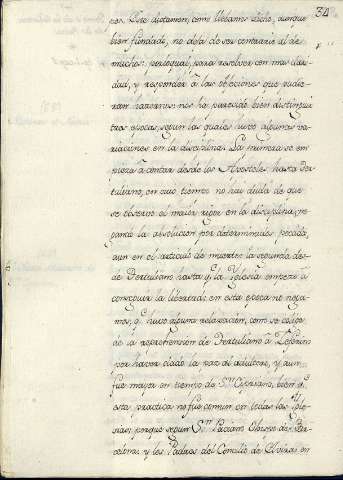 34
cos. Este dictamen, como llevamos dicho, aunque
bien fundado, no deja de ser contrario al de
muchos: por lo qual, para resolver con mas clari-
dad, y responder à las objeciones que pudie-
ran hacernos nos ha parecido bien distinguir
tres epocas, segun las quales huvo algunas va-
riaciones en la disciplina. La primera se em-
pieza à contar desde los Apostoles hasta Ter-
tuliano, en cuio tiempo no hai duda de que
se observó el maior rigor en la disciplina, ne-
gando la absolucion por determinados pecados,
aun en el articulo de muerte: la segunda des-
de Tertuliano hasta q. la Yglesia empezó à
conseguir la libertad; en esta epoca no nega-
mos, q. huvo alguna relaxacion, como se colige
de la reprehension de Tertuliano à Zeferino
por haver dado la paz al adultero, y aun
fue maior en tiempo de Sn. Cipriano, bien q.
esta practica no fue comun en todas las Ygle-
sias; porque segun Sn. Paciano Obispo de Bar-
celona, y los Padres del Concilio de Elvira en